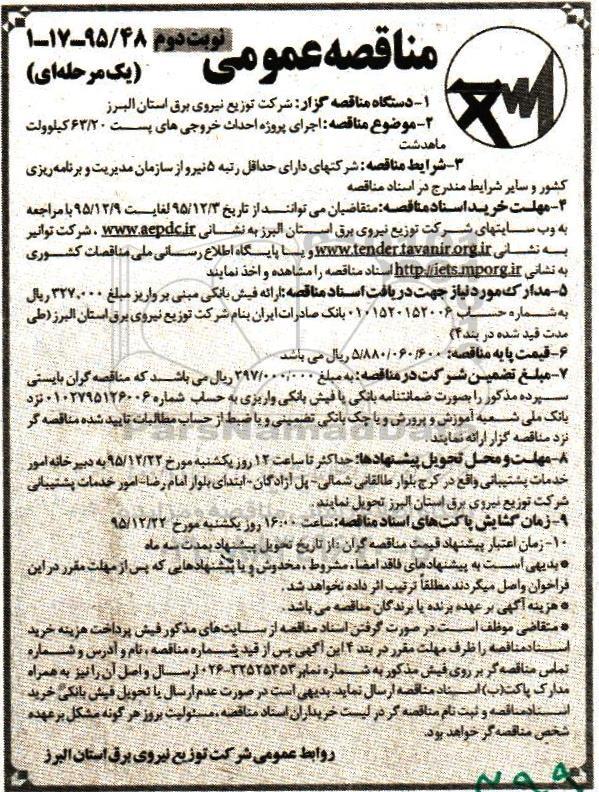 مناقصه عمومی
نوبت دوم ۹۵/۴۸-۱۷-۱
(یک مرحله‌ای)
۱-دستگاه مناقصه گزار: شرکت توزیع نیروی برق استان البرز
۲-موضوع مناقصه: اجرای پروژه احداث خروجی های پست ۶۳/۲۰ کیلوولت
ماهدشت
۳-شرایط مناقصه: شرکتهای دارای حداقل رتبه ۵ نیرو از سازمان مدیریت و برنامه‌ریزی
کشور و سایر شرایط مندرج در اسناد مناقصه
۴-مهلت خرید اسناد مناقصه: متقاضیان می توانند از تاریخ ۹۵/۱۲/۳ لغایت ۹۵/۱۲/۹ با مراجعه
به وب سایتهای شرکت توزیع نیروی برق استان البرز به نشانی www.aepdc.ir ، شرکت توانیر
به نشانی www.tender.tavanir.org.ir و یا پایگاه اطلاع رسانی ملی مناقصات کشوری
به نشانی http://iets.mporg.ir اسناد مناقصه را مشاهده و اخذ نمایند
۵-مدارک مورد نیاز جهت دریافت اسناد مناقصه: ارائه فیش بانکی مبنی بر واریز مبلغ ۳۲۷,۰۰۰ ریال
به شماره حساب ۰۱۰۱۵۲۰۱۵۲۰۰۶ بانک صادرات ایران بنام شرکت توزیع نیروی برق استان البرز (طی
مدت قید شده در بند۴)
۶-قیمت پایه مناقصه: ۵/۸۸۰/۰۶۰/۶۰۰ ریال می باشد
۷-مبلغ تضمین شرکت در مناقصه: به مبلغ ۲۹۷/۰۰۰/۰۰۰ ریال می باشد که مناقصه گران بایستی
سپرده مذکور را بصورت ضمانتنامه بانکی یا فیش بانکی واریزی به حساب شماره ۰۱۰۲۷۹۵۱۲۶۰۰۶ نزد
بانک ملی شعبه آموزش و پرورش و یا چک بانکی تضمینی و یا ضبط از حساب مطالبات تایید شده مناقصه گر
نزد مناقصه گزار ارائه نمایند
۸-مهلت و محل تحویل پیشنهادها: حداکثر تا ساعت ۱۲ روز یکشنبه مورخ ۹۵/۱۲/۲۲ به دبیرخانه امور
خدمات پشتیبانی واقع در کرج بلوار طالقانی شمالی- پل آزادگان-ابتدای بلوار امام رضا-امور خدمات پشتیبانی
شرکت توزیع نیروی برق استان البرز تحویل نمایند
۹-زمان گشایش پاکت‌های اسناد مناقصه: ساعت ۱۶:۰۰ روز یکشنبه مورخ ۹۵/۱۲/۲۲
۱۰-زمان اعتبار پیشنهاد قیمت مناقصه گران :از تاریخ تحویل پیشنهاد بمدت سه ماه
* بدیهی است به پیشنهادهای فاقد امضاء، مشروط ، مخدوش و یا پیشنهادهایی که پس از مهلت مقرر در این
فراخوان واصل میگردند مطلقاً ترتیب اثر داده نخواهد شد.
* هزینه آگهی بر عهده برنده یا برندگان مناقصه می باشد .
* متقاضی موظف است در صورت گرفتن اسناد مناقصه از سایت‌های مذکور فیش پرداخت هزینه خرید
اسناد مناقصه را ظرف مهلت مقرر در بند ۴ این آگهی پس از قید شماره مناقصه ، نام و آدرس و شماره
تماس مناقصه گر بر روی فیش مذکور به شماره نمابر ۳۲۵۲۵۳۵۳-۰۲۶ ارسال و اصل آن را نیز به همراه
مدارک پاکت(ب) اسناد مناقصه ارسال نماید. بدیهی است در صورت عدم ارسال یا تحویل فیش بانکی خرید
اسناد مناقصه و ثبت نام مناقصه گر در لیست خریداران اسناد مناقصه ، مسئولیت بروز هر گونه مشکل بر عهده
شخص مناقصه گر خواهد بود.
روابط عمومی شرکت توزیع نیروی برق استان البرز
ParsNamadData